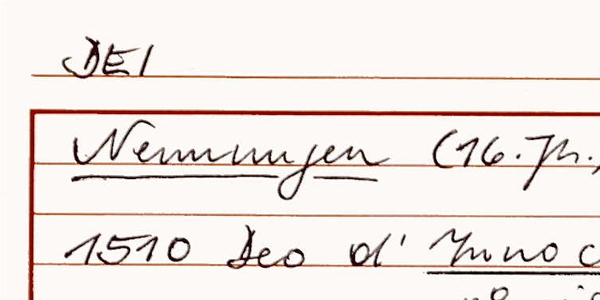 DEI
Nenningen (16. Jh.,
1510 Deo d'Inno c